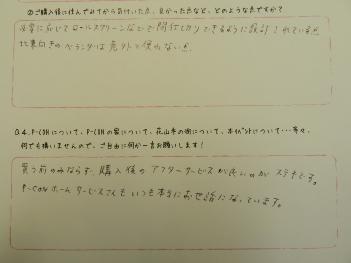 ②ご購入後に住んでみてから気付いた点、良かった点など、どのような点ですか？
必要に応じてロールスクリーンなどで間仕切りできるように設計されている点
北東向きのベランダは意外と使わない点
Q.4. P-CONについて、P-CONの家について、花山手の街について、本イベントについて・・・等々、
何でも構いませんので、ご自由に何か一言お願いします！
買う前のみならず、購入後のアフターサービスが良いのがステキです。
P-CONホームサービスさんもいつも本当にお世話になっています。